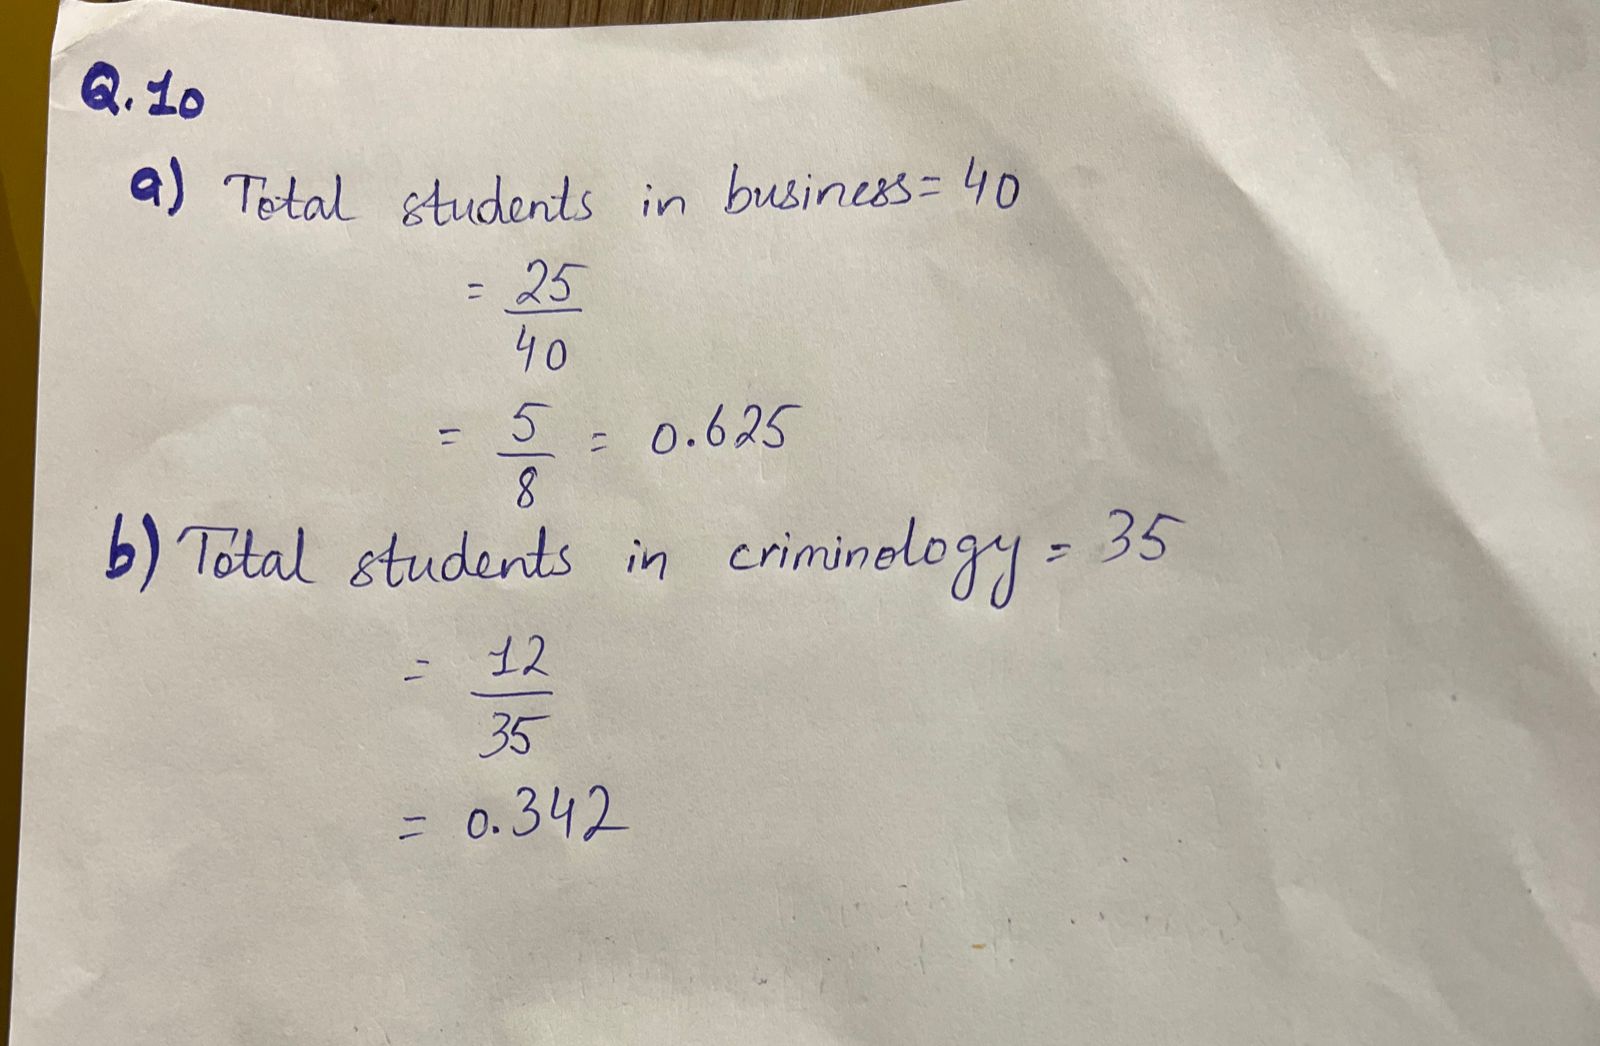 Q.10
a) Total students in business = 40
= 25/40
= 5/8 = 0.625
b) Total students in criminology = 35
= 12/35
= 0.342